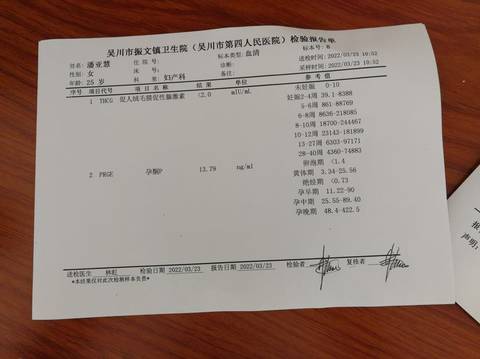 吴川市振文镇卫生院（吴川市第四人民医院）检验报告单
姓名：潘亚慧 住院号： 标本类型：血清 标本号：8
性别：女 床号： 诊断： 送检时间：2022/03/23 10:52
年龄：25岁 科室：妇产科 备注： 采样时间：2022/03/23 10:52
序号 项目代号 项目名称 结果 单位 参考值
1 THCG 促人绒毛膜促性腺激素 <2.0 mIU/mL 未妊娠 0-10
妊娠2-4周 39.1-8388
5-6周 861-88769
6-8周 8636-218085
8-10周 18700-244467
10-12周 23143-181899
13-27周 6303-97171
28-40周 4360-74883
2 PRGE 孕酮P 13.79 ng/ml 卵泡期 <1.4
黄体期 3.34-25.56
绝经期 <0.73
孕早期 11.22-90
孕中期 25.55-89.40
孕晚期 48.4-422.5
送检医生 林虹 检验日期 2022/03/23 报告日期 2022/03/23 检验者 复核者
*本结果仅对此次检测样本负责*
报
声明：